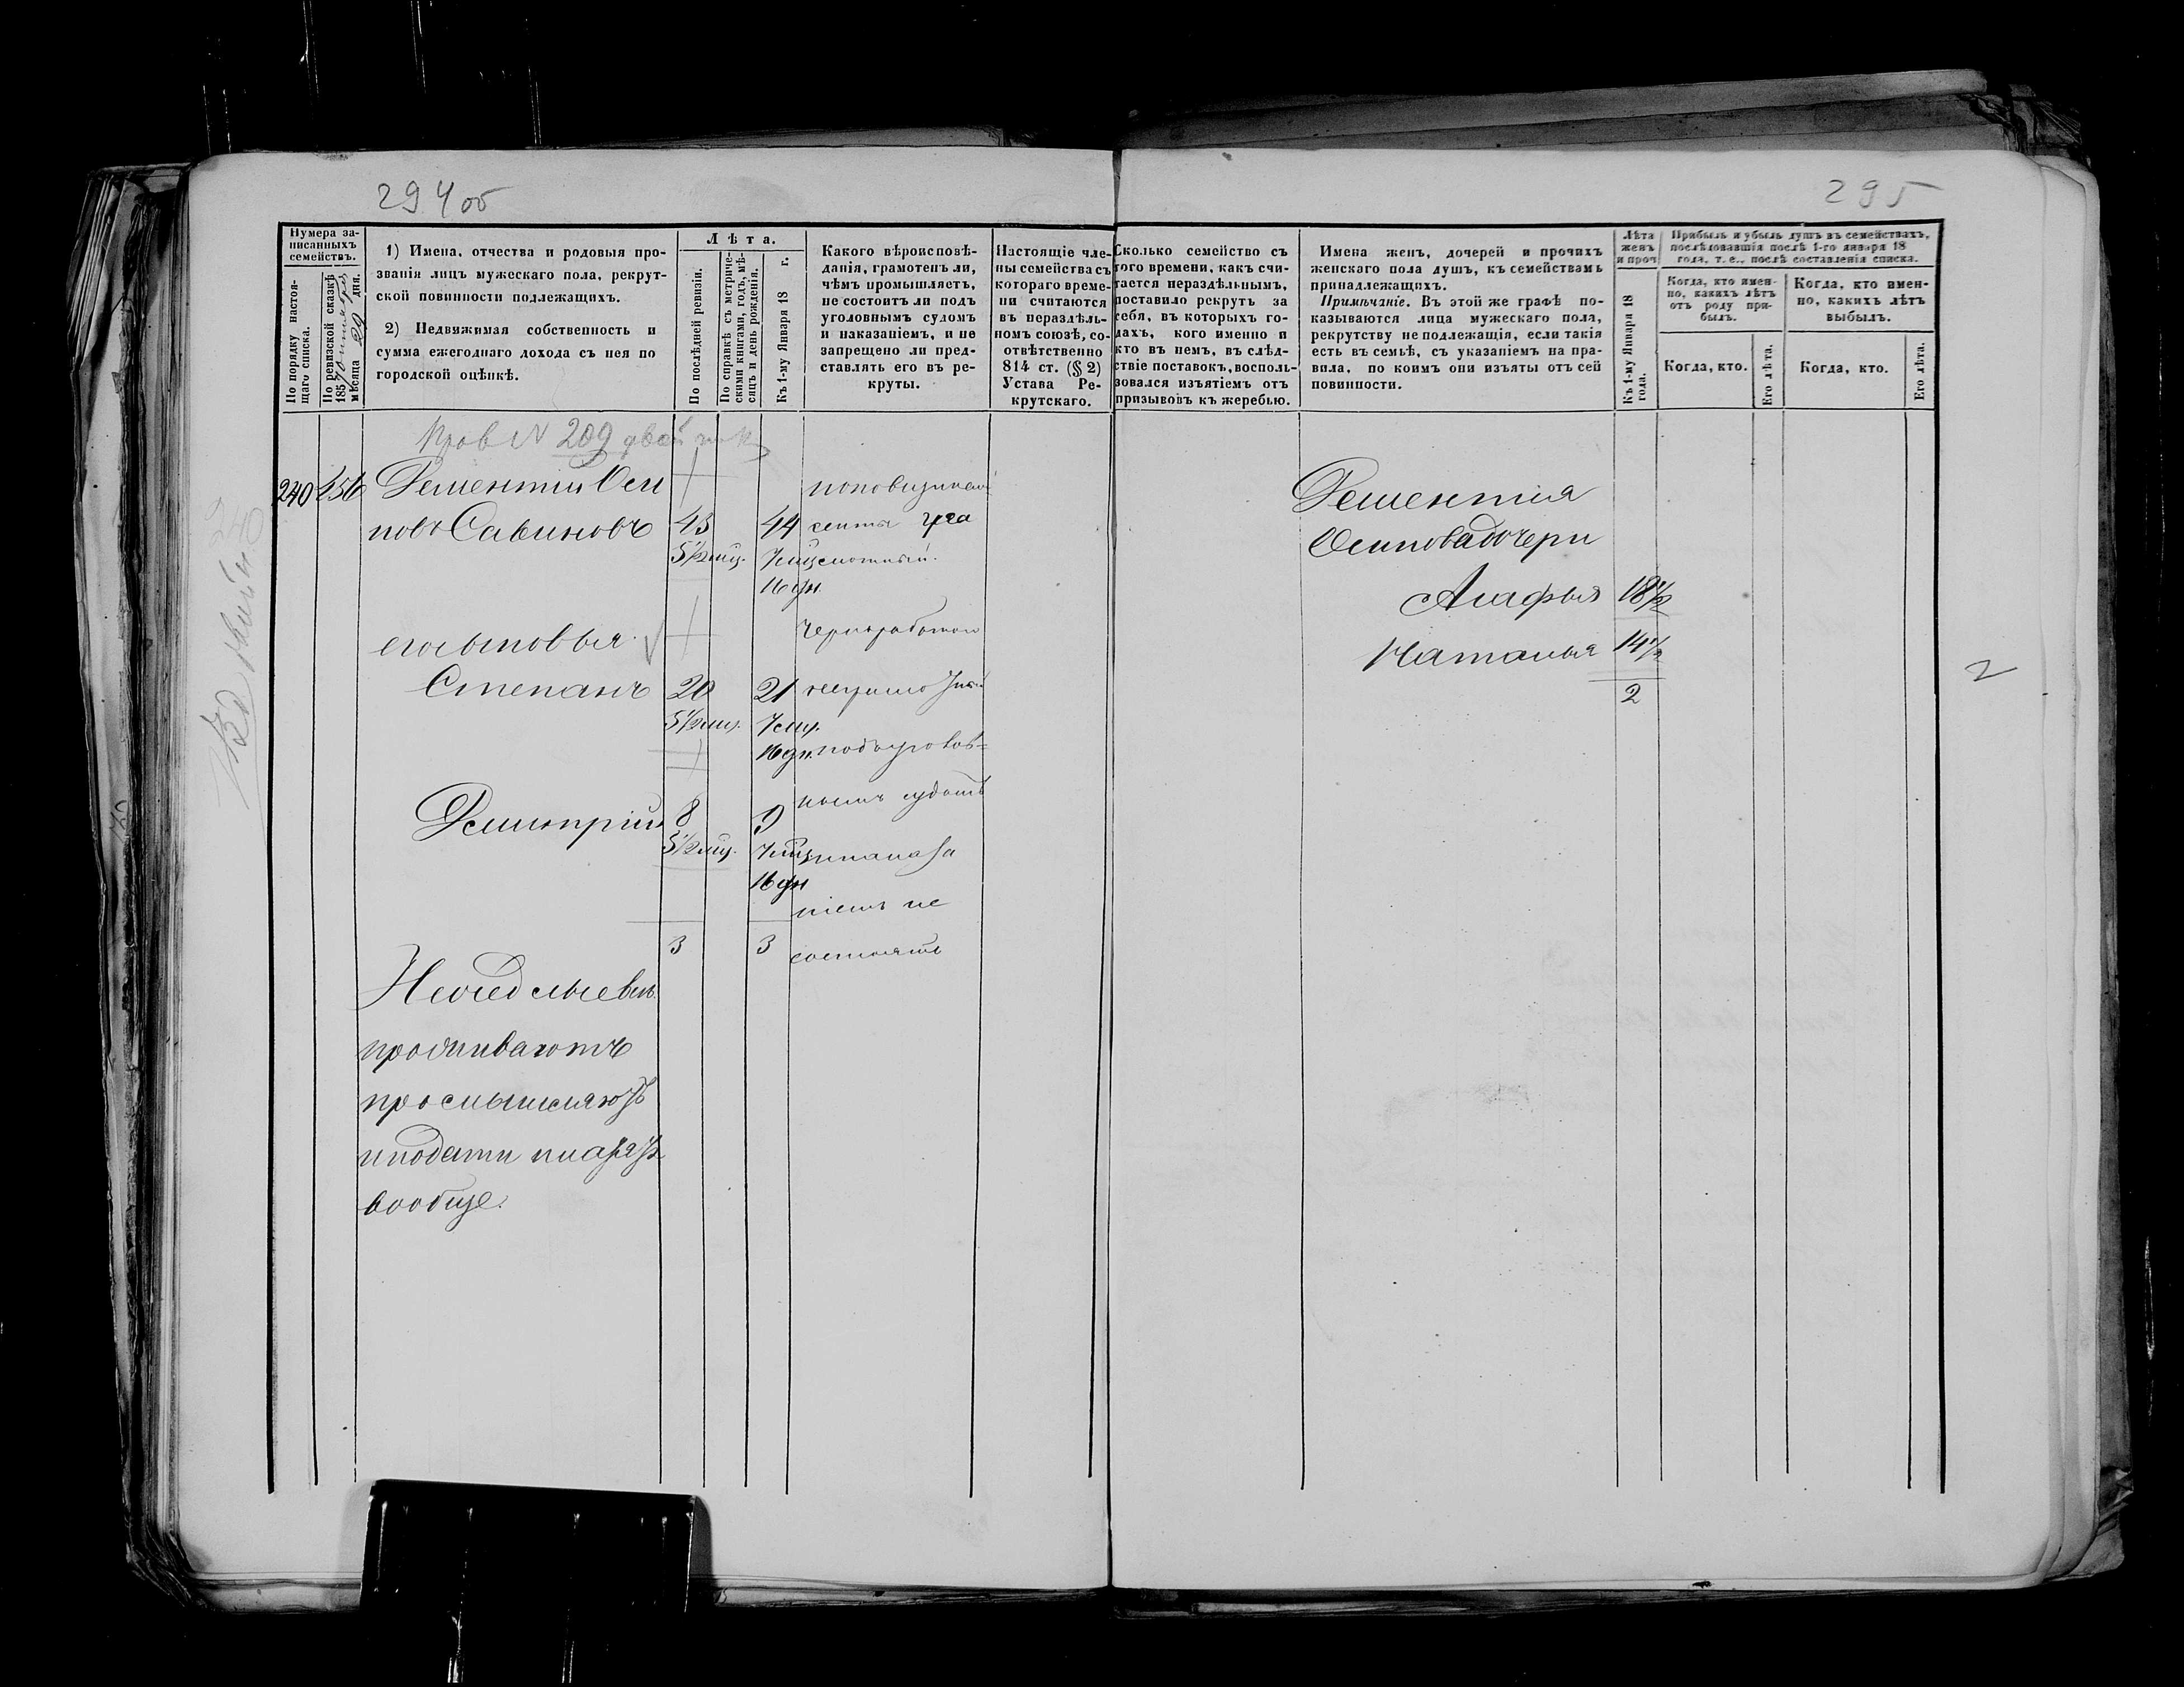 294 об
295
Нумера записанныхъ семействъ.
По порядку настоящаго списка.
По ревизской сказкѣ 1857 октября мѣсяца 29 дня.
1) Имена, отчества и родовыя прозванія лицъ мужескаго пола, рекрутской повинности подлежащихъ.
2) Недвижимая собственность и сумма ежегоднаго дохода съ нея по городской оцѣнкѣ.
Лѣта.
По послѣдней ревизіи.
По справкѣ съ метрическими книгами, годъ, мѣсяцъ и день рожденія.
Къ 1-му Января 18 г.
Какого вѣроисповѣданія, грамотенъ ли, чѣмъ промышляетъ, не состоитъ ли подъ уголовнымъ судомъ и наказаніемъ, и не запрещено ли представлять его въ рекруты.
Настоящіе члены семейства съ котораго времени считаются въ нераздѣльномъ союзѣ, соотвѣтственно 814 ст. (§ 2) Устава Рекрутскаго.
Сколько семейство съ того времени, какъ считается нераздѣльнымъ, поставило рекрутъ за себя, въ которыхъ годахъ, кого именно и кто въ немъ, въ слѣдствіе поставокъ, воспользовался изъятіемъ отъ призывовъ къ жеребью.
Имена женъ, дочерей и прочихъ женскаго пола душъ, къ семействамъ принадлежащихъ.
Примѣчаніе. Въ этой же графѣ показываются лица мужескаго пола, рекрутству не подлежащія, если такія есть въ семьѣ, съ указаніемъ на правила, по коимъ они изъяты отъ сей повинности.
Лѣта женъ и проч
Къ 1-му Января 18 года.
Прибыль и убыль душъ въ семействахъ, послѣдовавшія послѣ 1-го января 18 года, т. е., послѣ составленія списка.
Когда, кто именно, какихъ лѣтъ отъ роду прибылъ.
Когда, кто именно, какихъ лѣтъ выбылъ.
Когда, кто.
Его лѣта.
Когда, кто.
Его лѣта.
Пров № 209
240 156 Дементій Оси
повъ Савиновъ 43 44 секты гра
5 1/2 мц. 7 мц мотный.
16 дн.
его сыновья чернорабочій
Степанъ 20 21
5 1/2 мц. 7 мц.
16 дн. подъ уголов=
нымъ судомъ
Димитрій 8 9
5 1/2 мц. 7 мц и наказа
16 дн
ніемъ не
3 3 состоятъ
проживаютъ
промышляютъ
и подати платятъ
вообще.
Дементія
Осипова дочери
Агафья 18 1/2
Наталья 14 1/2
2
2